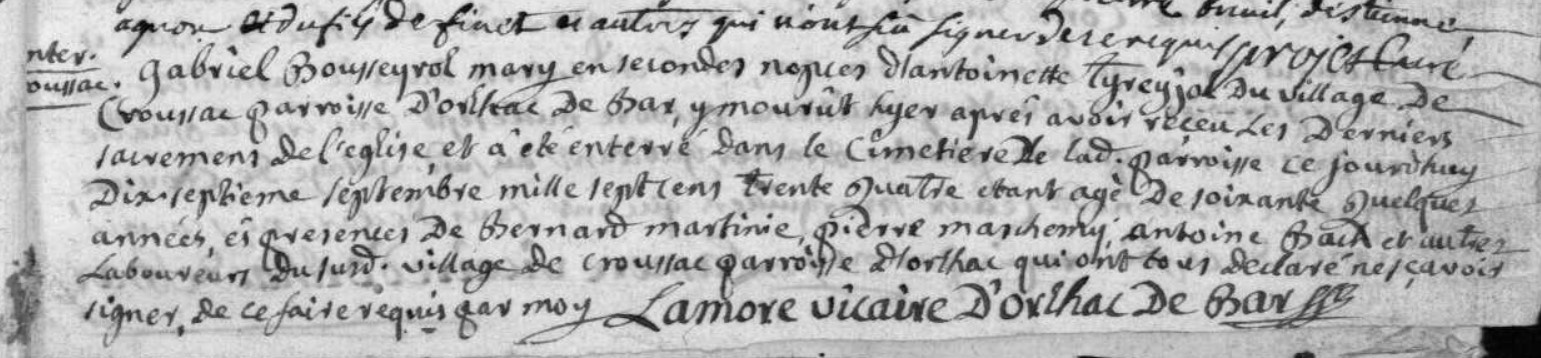 agnon et du fils de finet et autres qui n'ont sçu signer de ce requis projet Curé
nter.
oussac. Gabriel Bousseyrol mary en secondes nopces d'antoinette Tyreyjol Du village De
Croussac parroisse D'orlhac De Bar, y mourût hyer aprés avoir réçeu Les Derniers
sacremens de l'eglise et â été enterré dans le Cimetiere De lad. parroisse ce jourdhuy
Dix-septieme septembre mille sept cens trente quatre etant agé De soixante quelques
années, és presences De Bernard martinie, pierre maschemy, antoine Bach et autres
Laboureurs du susd. village de croussac parroisse d'orlhac qui ont tous declaré ne sçavoir
signer, de ce faire requis par moy Lamore vicaire D'orlhac De Bar